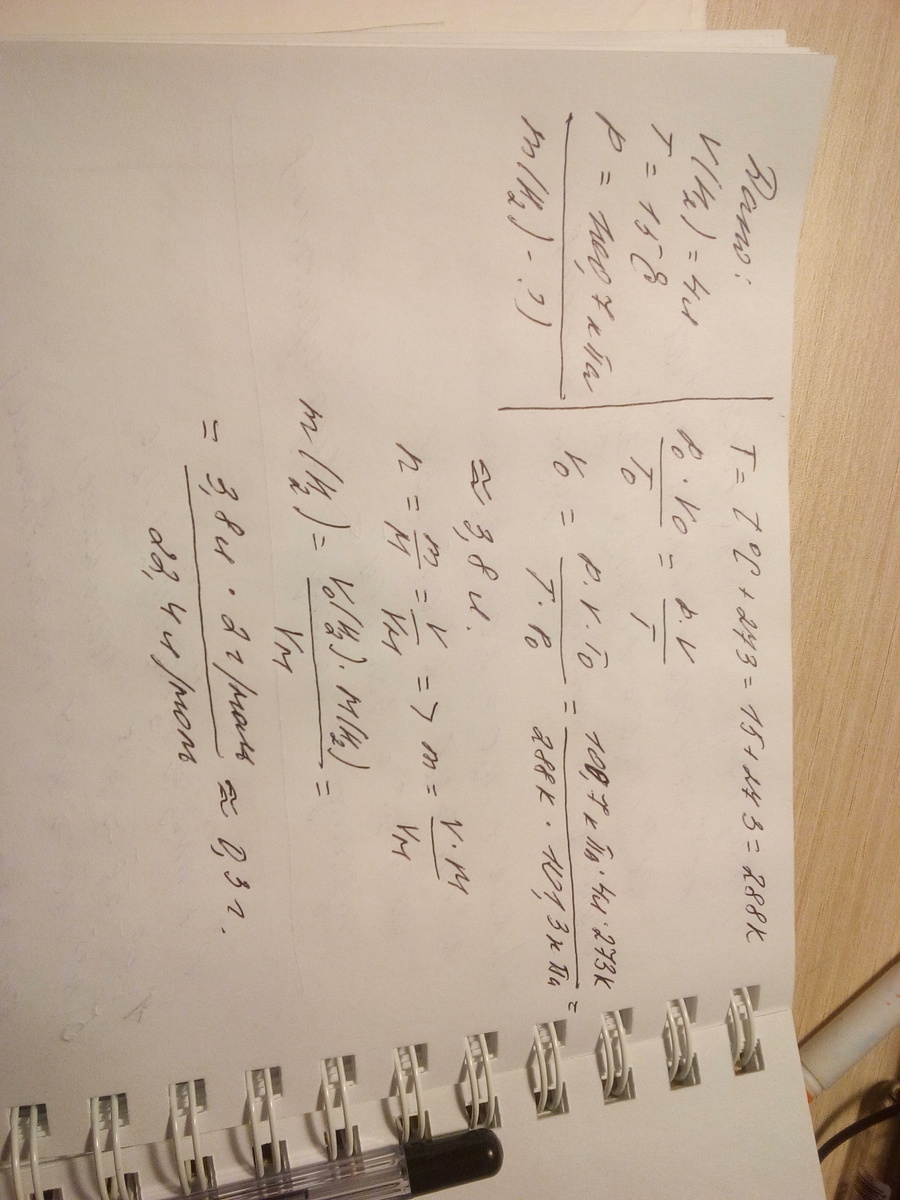 Дано:
V(H₂) = 4л
T = 15°C
P = 100,7 кПа
m(H₂) - ?)
T = t°C + 273 = 15 + 273 = 288K
P₀ · V₀ / T₀ = P · V / T
V₀ = P · V · T₀ / T · P₀ = 100,7 кПа · 4л · 273K / 288K · 101,3 кПа =
≈ 3,8 л.
n = m / M = V / Vм => m = V · M / Vм
m(H₂) = V₀(H₂) · M(H₂) / Vм =
= 3,8л · 2г/моль / 22,4л/моль ≈ 0,3г.